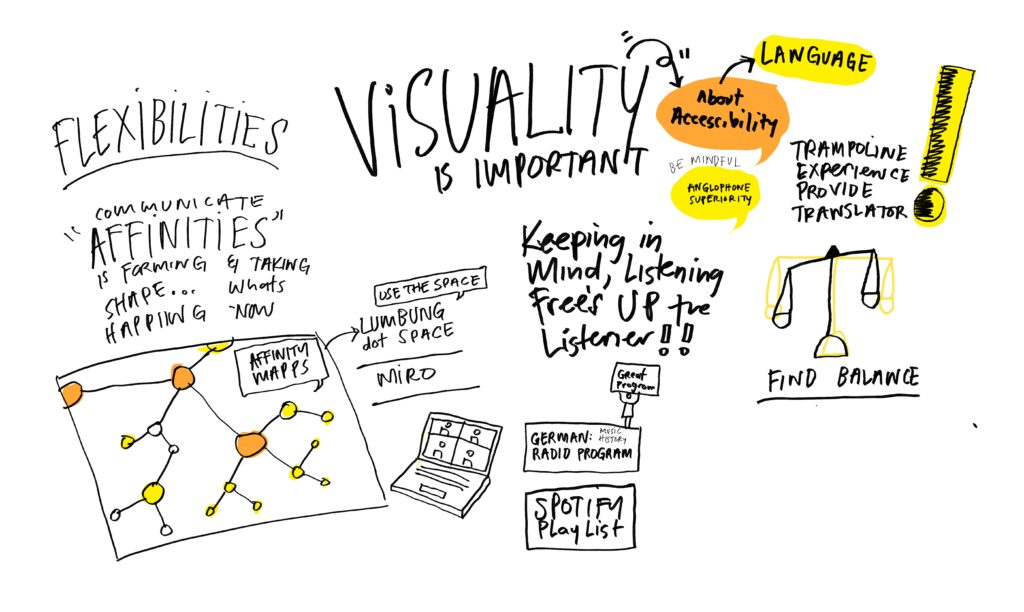 FLEXIBILITIES
COMMUNICATE
"AFFINITIES"
is FORMING & TAKING
SHAPE... Whats
HAPPIING NOW
AFFINITY
MAPPS
USE THE SPACE
LUMBUNG
dot SPACE
MiRO
ViSUALITY
is IMPORTANT
About
Accessibility
LANGUAGE
BE MINDFUL
ANGLOPHONE
SUPERIORITY
TRAMPOLINE
EXPERIENCE
PROVIDE
TRANSLATOR
Keeping in
Mind, Listening
Free's UP the
Listener!!
Great
Program
GERMAN: MUSIC HISTORY
RADIO PROGRAM
SPOTIFY
PLayList
FIND BALANCE